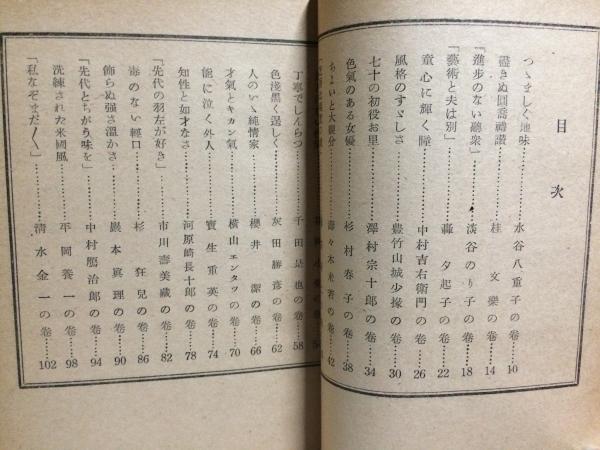 目次
つゝましく地味…………水谷八重子の卷……10
盡きぬ圓喬禮讃…………桂文樂の卷……14
「進歩のない聽衆」…………淡谷のり子の卷……18
「藝術と夫は別」…………轟夕起子の卷……22
童心に輝く瞳…………中村吉右衞門の卷……26
風格のすゞしさ…………豊竹山城少掾の卷……30
七十の初役お里…………澤村宗十郎の卷……34
色氣のある女優…………杉村春子の卷……38
ちよいと大親分…………壽々木米若の卷……42
丁寧でしんらつ…………千田是也の卷……58
色淺黑く逞しく…………灰田勝彦の卷……62
人のいゝ純情家…………櫻井潔の卷……66
才氣とキカン氣…………横山エンタツの卷……70
能に泣く外人…………寶生重英の卷……74
知性と如才なさ…………河原崎長十郎の卷……78
「先代の羽左が好き」…………市川壽美藏の卷……82
毒のない輕口…………杉狂兒の卷……86
飾らぬ强さ溫かさ…………巖本眞理の卷……90
「先代とちがう味を」…………中村翫治郎の卷……94
洗練された米國風…………平岡養一の卷……98
「私なぞまだ〱」…………清水金一の卷……102